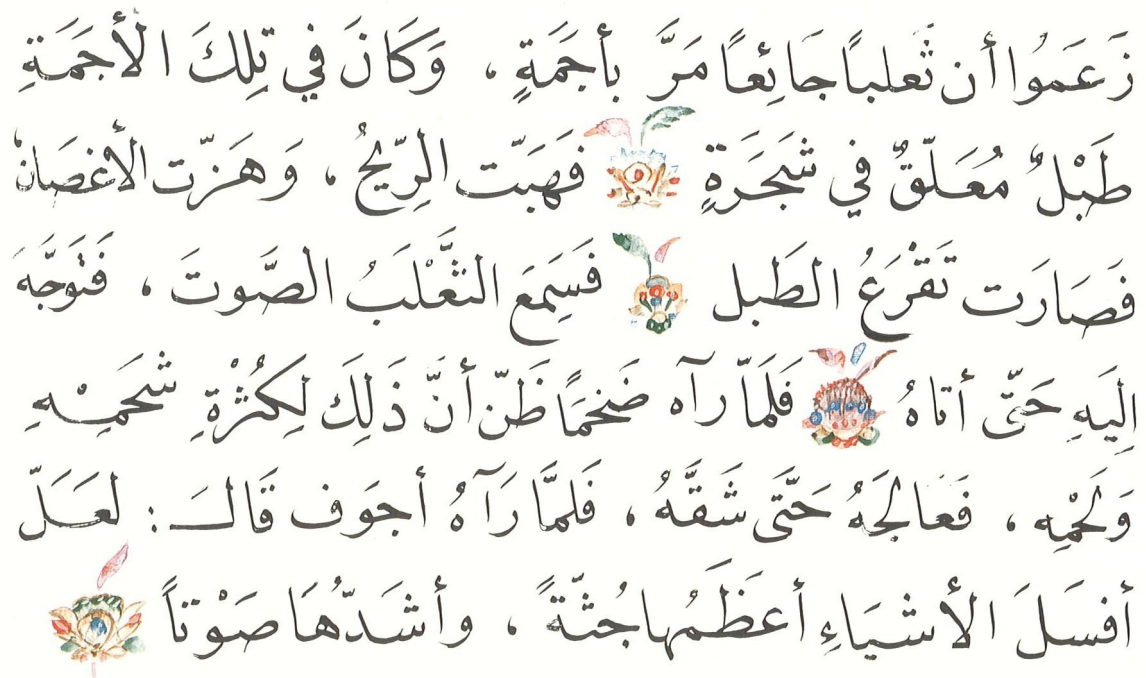 زَعَمُوا أن ثَعلباً جَائِعاً مَرَّ بأجَمَةٍ ، وَكَانَ في تِلكَ الأجَمَةِ
طَبْلٌ مُعَلّقٌ في شَجَرَةٍ فَهَبّت الرِّيحُ ، وَهَزّت الأغصَانَ
فَصَارَت تَقْرَعُ الطَبل فَسَمِعَ الثَّعْلَبُ الصَّوتَ ، فَتَوَجَّهَ
إلَيهِ حَتّى أتاهُ فَلَمّا رآه ضَخماً ظَنّ أنَّ ذَلِكَ لِكَثْرَةِ شَحمِـهِ
وَلَحْمِه ، فَعَالجَهُ حَتَّى شَقَّهُ ، فَلمَّا رَآهُ أجوَف قَالـَ : لعَـلّ
أفسَلَ الأشيَاءِ أعظَمُها جُثّةً ، وأشَدُّهَا صَوْتاً